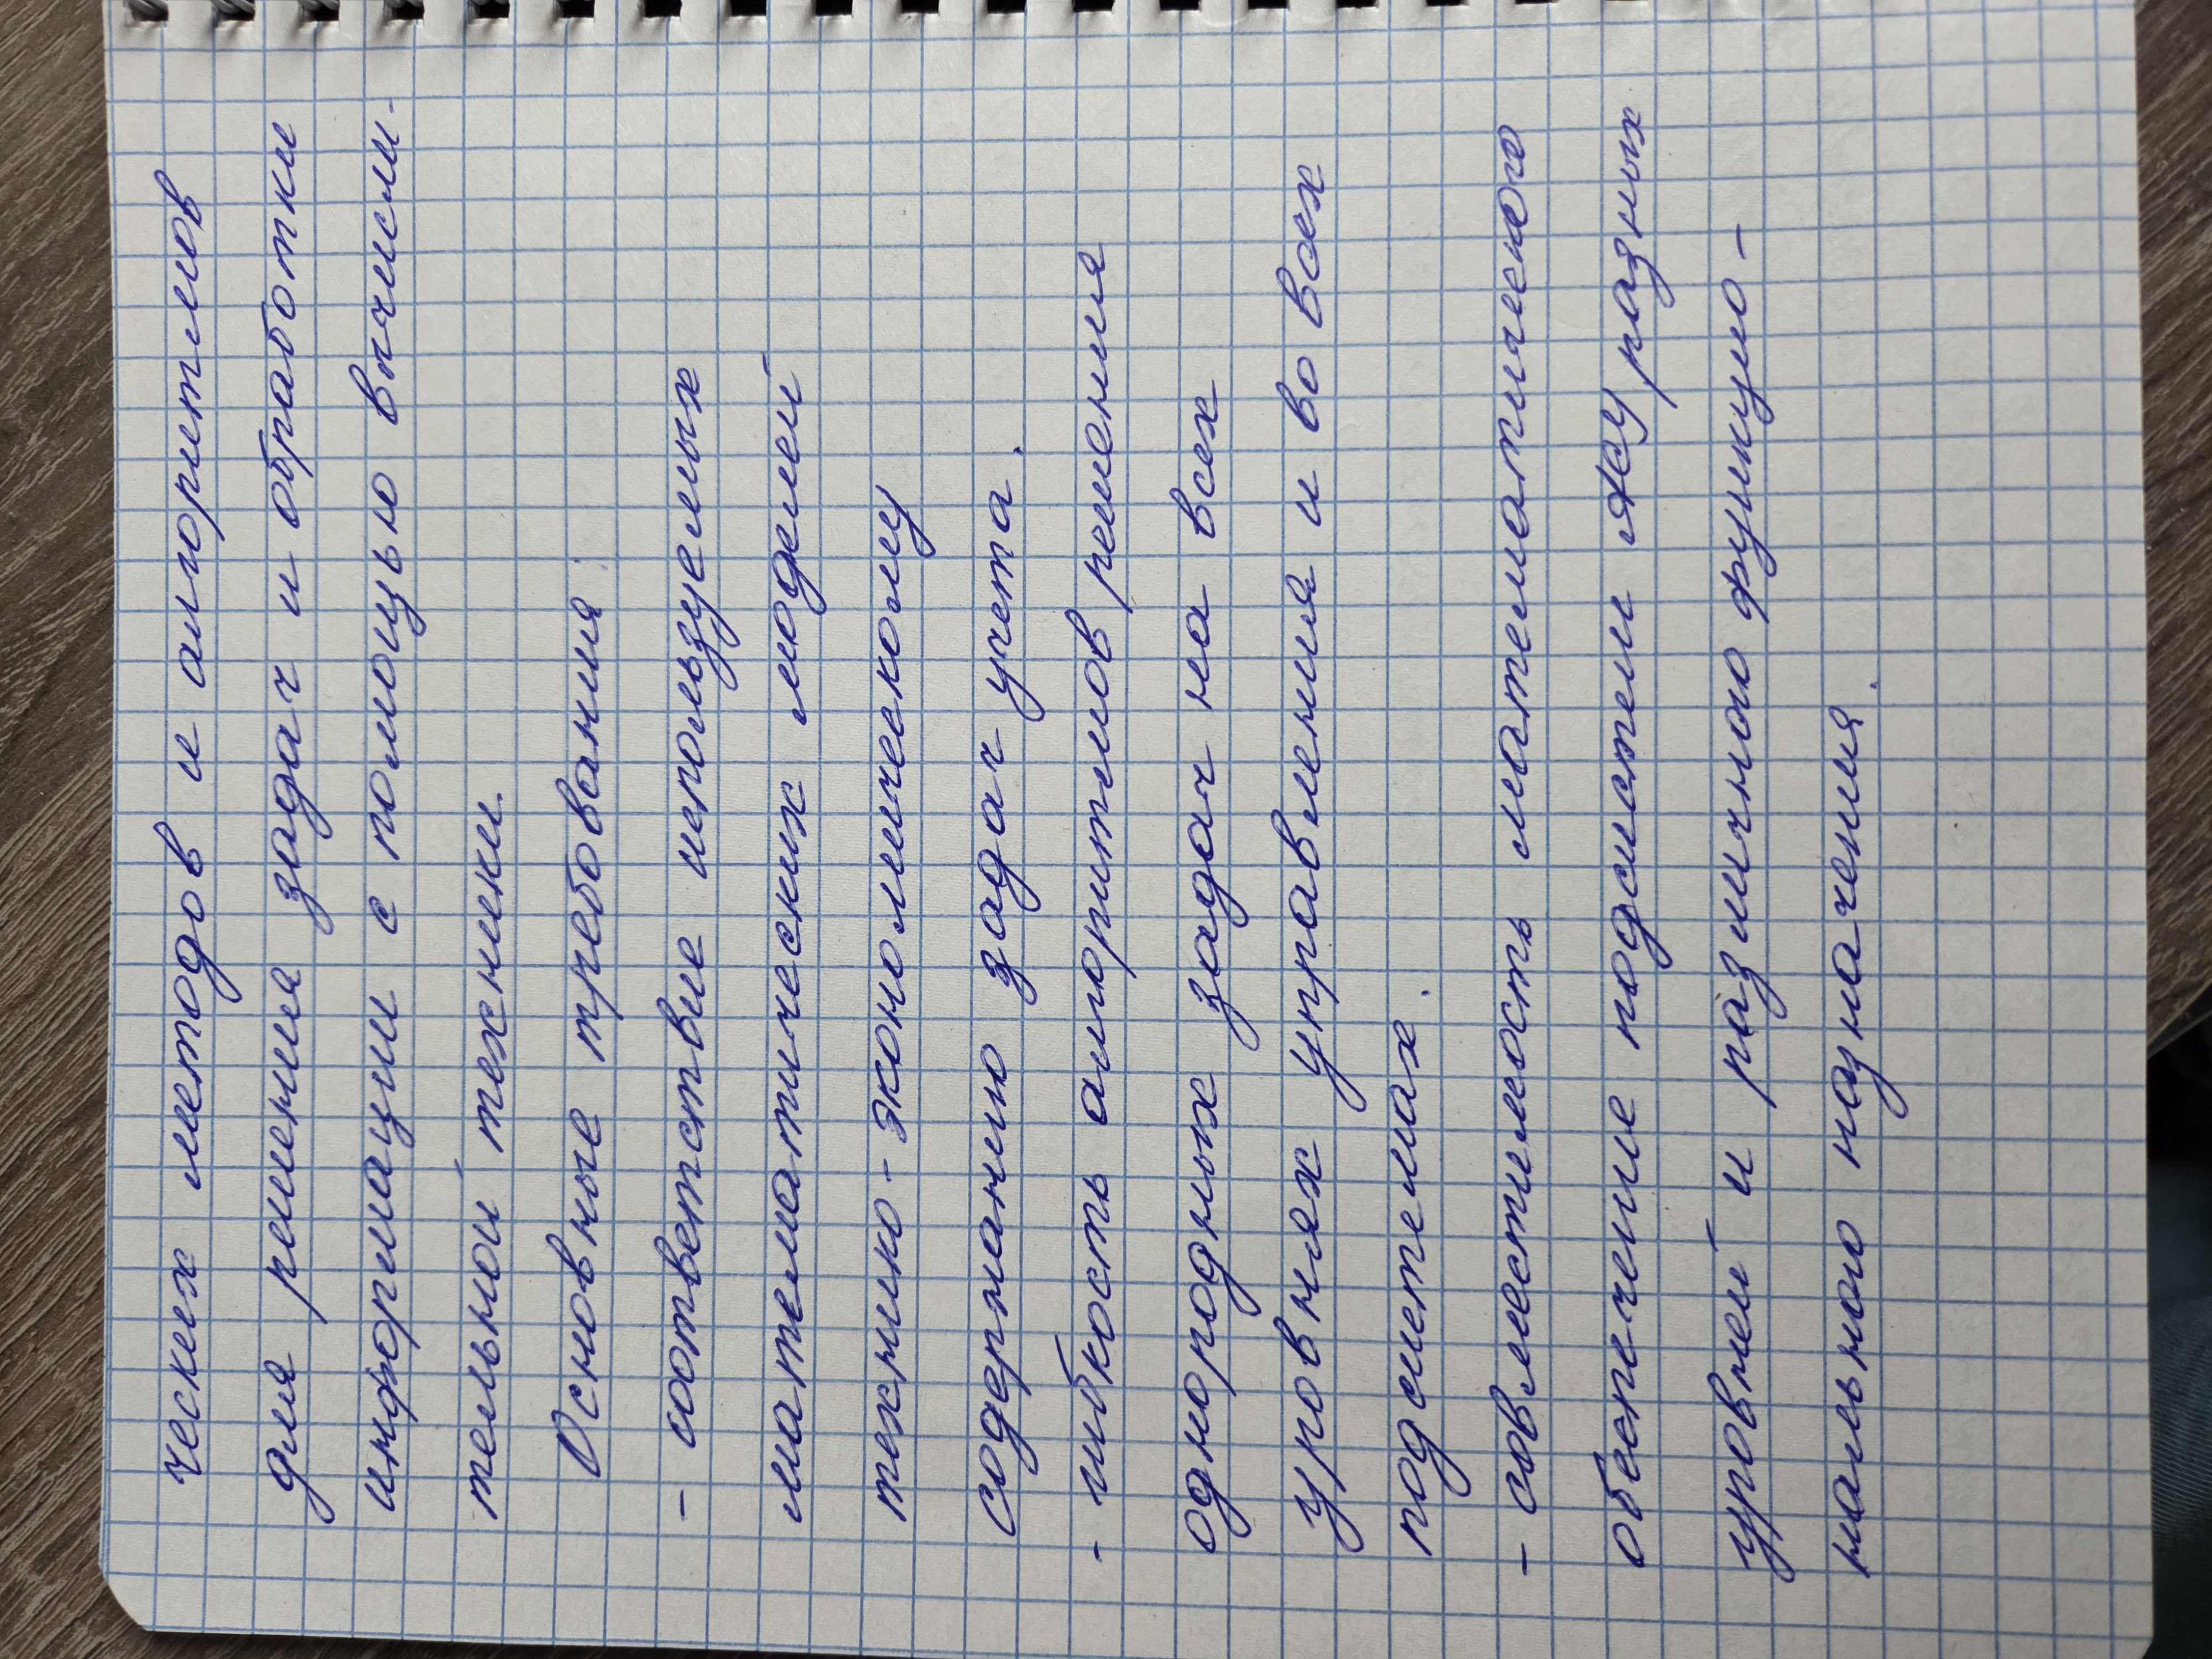 ческих методов и алгоритмов
для решения задач и обработки
информации с помощью вычисли-
тельной техники.
Основные требования:
- соответствие используемых
математических моделей
технико-экономическому
содержанию задач учета.
- гибкость алгоритмов решения
однородных задач на всех
уровнях управления и во всех
подсистемах.
- совместимость математического
обеспечение подсистем АСУ разных
уровней и различного функцио-
нального назначения.